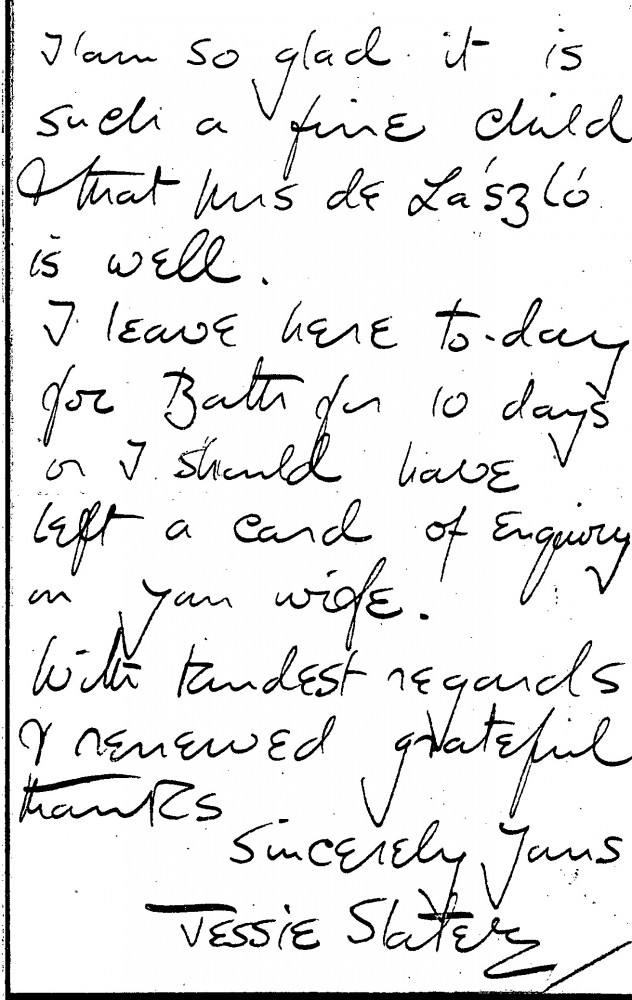 I am so glad it is
such a fine child
& that Mrs de László
is well.
I leave here to-day
for Bath for 10 days
or I should have
left a card of Enquiry
on your wife.
With kindest regards
& renewed grateful
thanks
Sincerely Yours
Jessie Slater